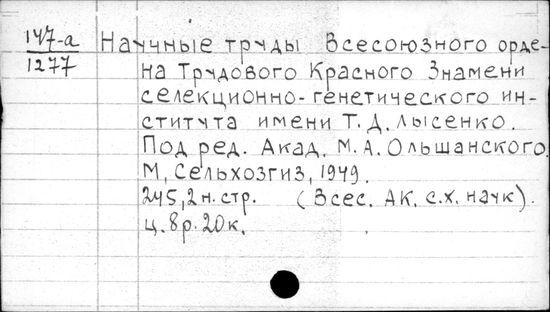 147-а
1277
Научные труды Всесоюзного орде-
на Трудового Красного Знамени
селекционно-генетического ин-
ститута имени Т.Д. Лысенко.
Под ред. Акад. М.А. Ольшанского.
М, Сельхозгиз, 1949.
245, 2 н. стр. (Всес. Ак. с.х. наук).
ц. 8 р. 20 к.